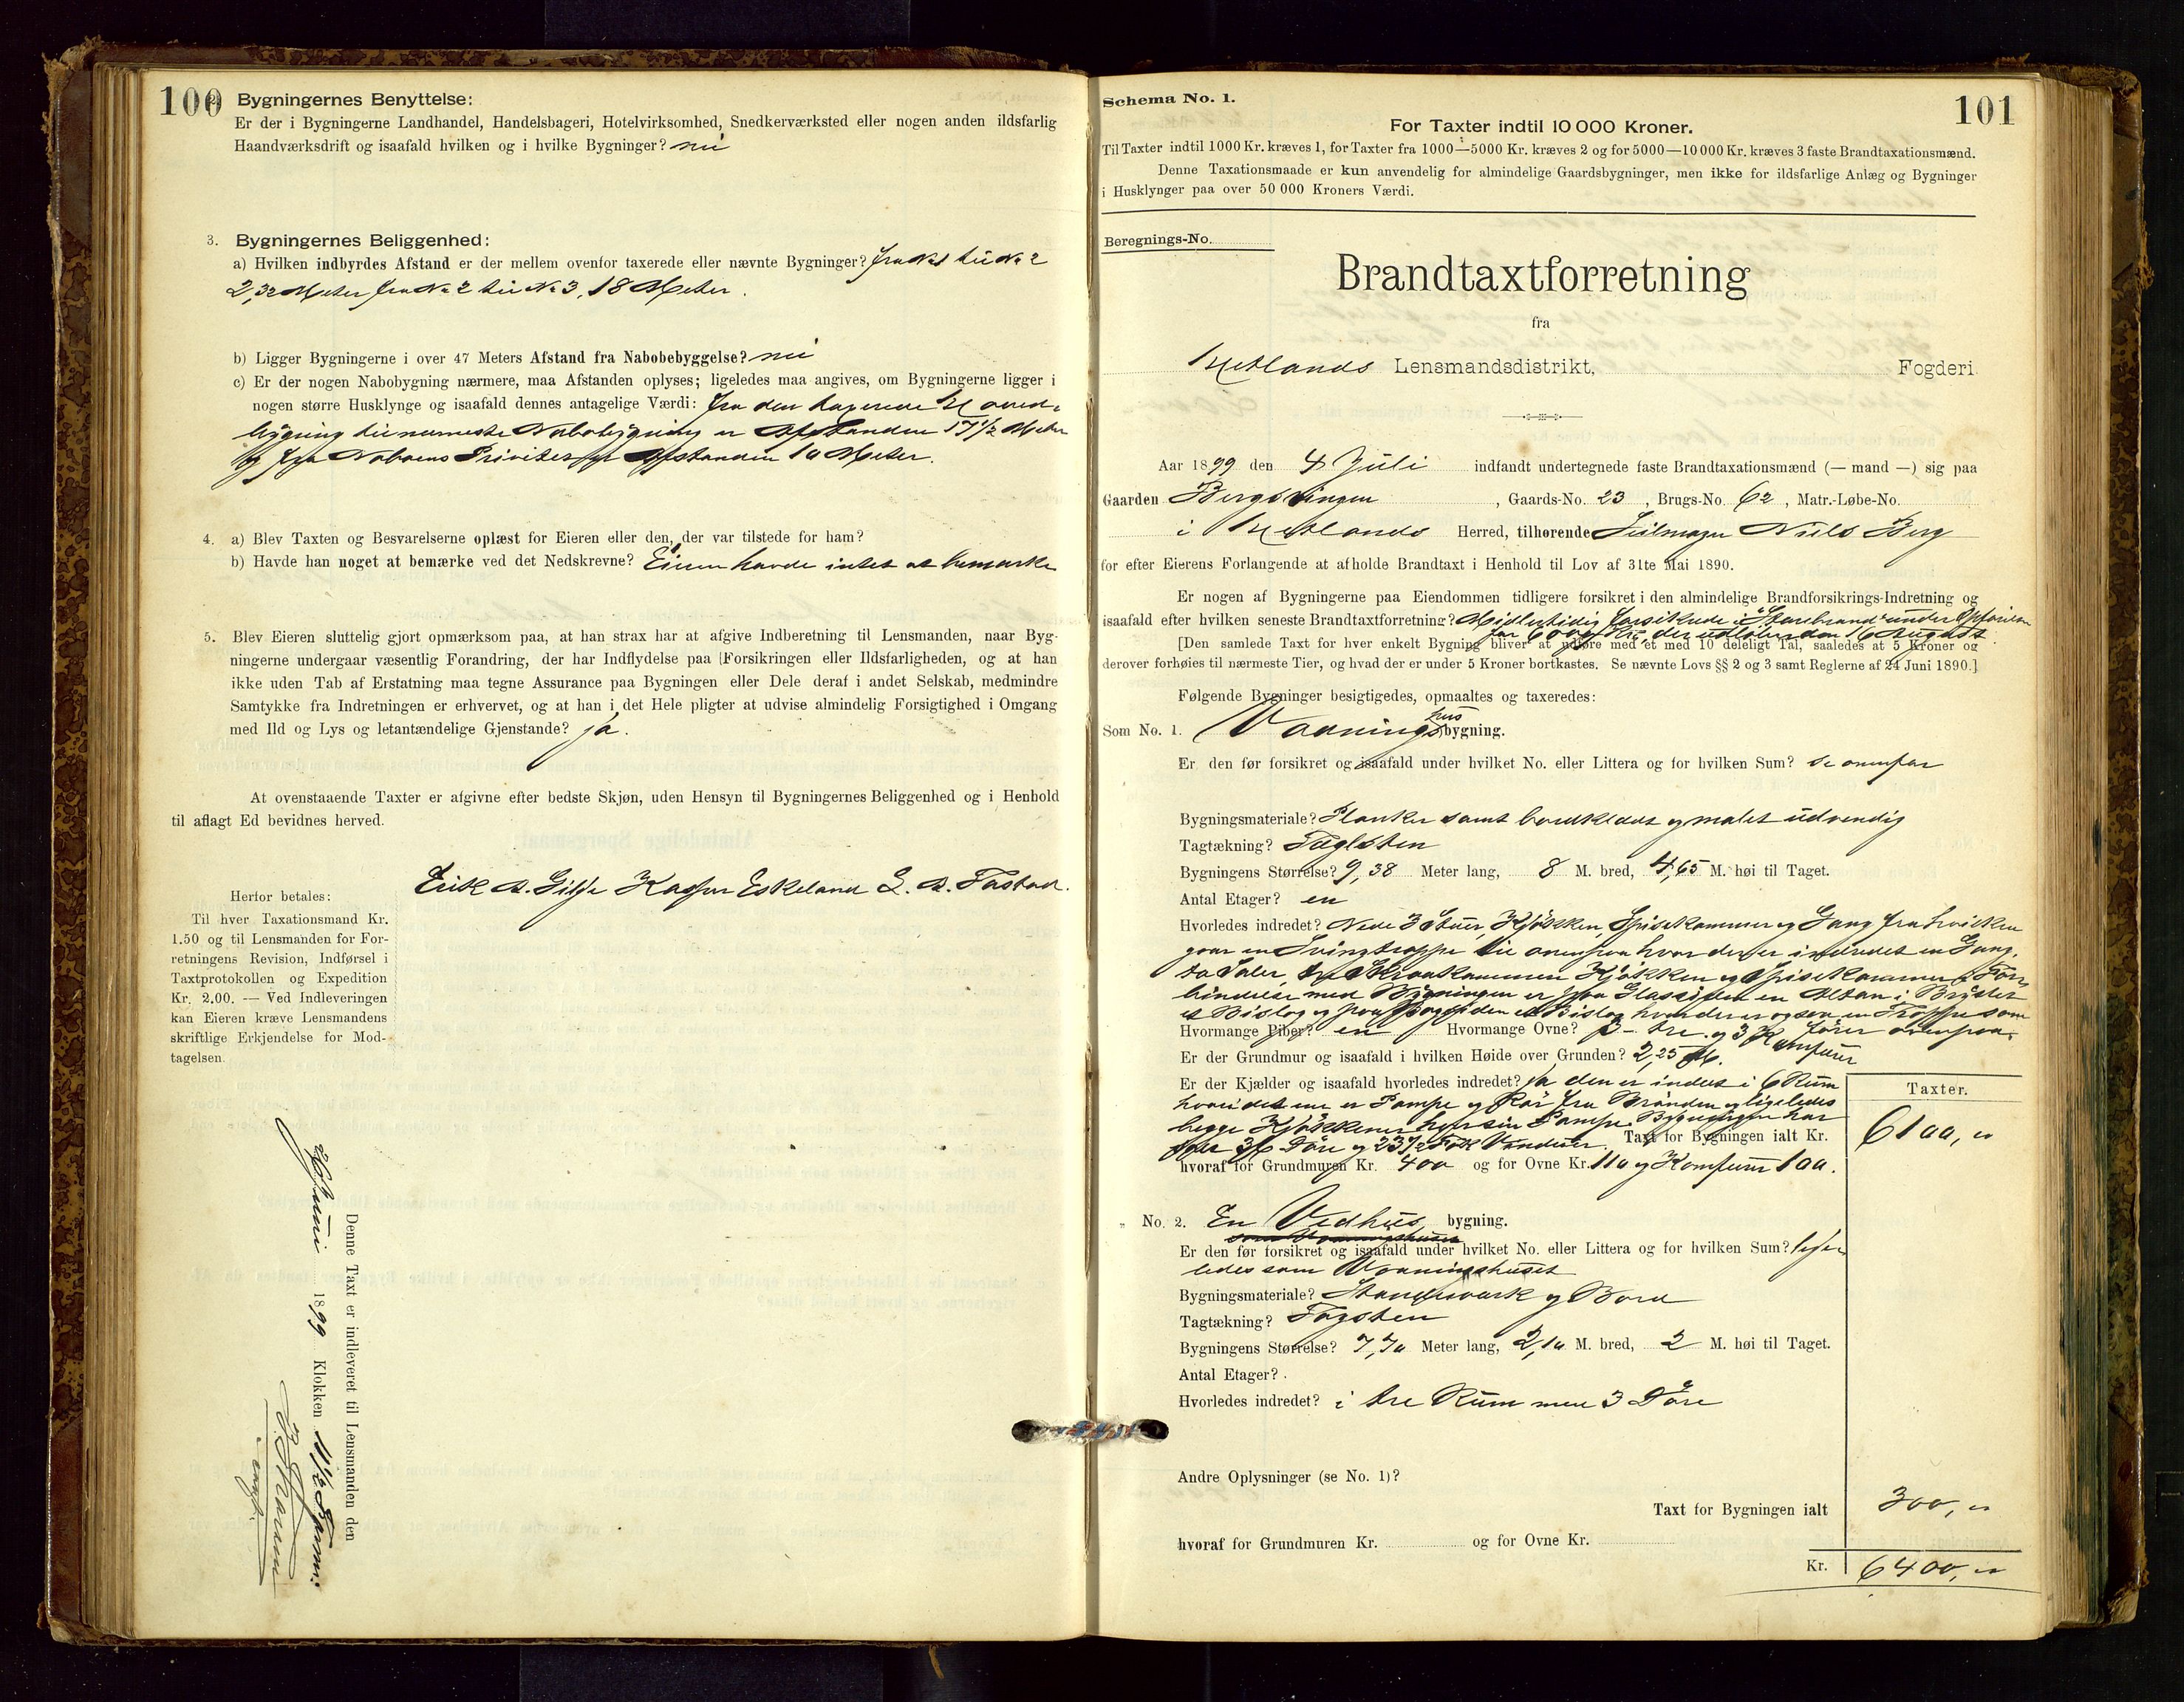 100
2. Bygningernes Benyttelse:
Er der i Bygningerne Landhandel, Handelsbageri, Hotelvirksomhed, Snedkerværksted eller nogen anden ildsfarlig
Haandværksdrift og isaafald hvilken og i hvilke Bygninger? nei
3. Bygningernes Beliggenhed:
a) Hvilken indbyrdes Afstand er der mellem ovenfor taxerede eller nævnte Bygninger? fra No 1 til No 2
2,32 Meter fra No 2 til No 3, 18 Meter.
b) Ligger Bygningerne i over 47 Meters Afstand fra Nabobebyggelse? nei
c) Er der nogen Nabobygning nærmere, maa Afstanden oplyses; ligeledes maa angives, om Bygningerne ligger i
nogen større Husklynge og isaafald dennes antagelige Værdi: fra den taxerede Hoved-
bygning til nærmeste Nabobygning er Afstanden 17 1/2 Meter
og fra Naboens er Afstanden 10 Meter.
4. a) Blev Taxten og Besvarelserne oplæst for Eieren eller den, der var tilstede for ham?
b) Havde han noget at bemærke ved det Nedskrevne? Eieren havde intet at bemærke
5. Blev Eieren sluttelig gjort opmærksom paa, at han strax har at afgive Indberetning til Lensmanden, naar Byg-
ningerne undergaar væsentlig Forandring, der har Indflydelse paa Forsikringen eller Ildsfarligheden, og at han
ikke uden Tab af Erstatning maa tegne Assurance paa Bygningen eller Dele deraf i andet Selskab, medmindre
Samtykke fra Indretningen er erhvervet, og at han i det Hele pligter at udvise almindelig Forsigtighed i Omgang
med Ild og Lys og letantændelige Gjenstande? ja.
At ovenstaaende Taxter er afgivne efter bedste Skjøn, uden Hensyn til Bygningernes Beliggenhed og i Henhold
til aflagt Ed bevidnes herved.
Erik A. Gilje Kasper Eskeland L. A. Tastad.
Herfor betales:
Til hver Taxationsmand Kr.
1.50 og til Lensmanden for For-
retningens Revision, Indførsel i
Taxtprotokollen og Expedition
Kr. 2.00. — Ved Indleveringen
kan Eieren kræve Lensmandens
skriftlige Erkjendelse for Mod-
tagelsen.
Denne Taxt er indleveret til Lensmanden den
1899 Klokken 11 1/2 Form:
Schema No. 1.
101
For Taxter indtil 10 000 Kroner.
Til Taxter indtil 1000 Kr. kræves 1, for Taxter fra 1000—5000 Kr. kræves 2 og for 5000—10 000 Kr. kræves 3 faste Brandtaxationsmænd.
Denne Taxationsmaade er kun anvendelig for almindelige Gaardsbygninger, men ikke for ildsfarlige Anlæg og Bygninger
i Husklynger paa over 50 000 Kroners Værdi.
Beregnings-No.
Brandtaxtforretning
fra
Hetlands Lensmandsdistrikt, Fogderi.
Aar 1899 den 4 Juli indfandt undertegnede faste Brandtaxationsmænd (— mand —) sig paa
Gaarden Bergsvingen, Gaards-No. 23, Brugs-No. 62, Matr.-Løbe-No.
i Hetlands Herred, tilhørende Seilmager Niels Berg
for efter Eierens Forlangende at afholde Brandtaxt i Henhold til Lov af 31te Mai 1890.
Er nogen af Bygningerne paa Eiendommen tidligere forsikret i den almindelige Brandforsikrings-Indretning og
isaafald efter hvilken seneste Brandtaxtforretning? Midlertidig forsikrede i "Storebrand" under Opførelse
for 6000 Kr, der udløber den 16 August.
[Den samlede Taxt for hver enkelt Bygning bliver at udføre med et med 10 deleligt Tal, saaledes at 5 Kroner og
derover forhøies til nærmeste Tier, og hvad der er under 5 Kroner bortkastes. Se nævnte Lovs §§ 2 og 3 samt Reglerne af 24 Juni 1890.]
Følgende Bygninger besigtigedes, opmaaltes og taxeredes:
Som No. 1. Vaaningshus bygning.
Er den før forsikret og isaafald under hvilket No. eller Littera og for hvilken Sum? se ovenfor
Bygningsmateriale? Planker samt bordklædt og malet udvendig
Tagtækning? Taglsten
Bygningens Størrelse? 9,38 Meter lang, 8 M. bred, 4,65 M. høi til Taget.
Antal Etager? en
Hvorledes indredet? Nede 3 Stuer, Kjøkken, Spisekammer og Gang fra hvilken
gaar en Svingtrappe til ovenpaa hvor der er indredet en Gang,
to Saler, Kjøkken og Spisekammer i For-
bindelse med Bygningen er paa en Altan i
et Bislag og paa Bagsiden et Bislag hvori der er ogsaa en Trappe som
fører ovenpaa.
Hvormange Piber? en Hvormange Ovne? 3 - tre. og 3 Komfurer
Er der Grundmur og isaafald i hvilken Høide over Grunden? 2,25 M.
Er der Kjælder og isaafald hvorledes indredet? ja den er inddelt i 6 Rum
hvori det ene er Pompe og Rør fra Brønden og ligeledes
begge Kjøkkener hver sin Pompe. Bygningen har
36 Døre og 23 1/2 Fag Vinduer. Taxt for Bygningen ialt Kr.
hvoraf for Grundmuren Kr. 400 og for Ovne Kr. 110 og Komfurer 100.
Taxter.
6100, "
" No. 2. En Vedhus bygning.
Er den før forsikret og isaafald under hvilket No. eller Littera og for hvilken Sum? lige-
ledes som Vaaningshuset
Bygningsmateriale? Standerværk og Bord
Tagtækning? Tagsten
Bygningens Størrelse? 7,70 Meter lang, 2,10 M. bred, 2 M. høi til Taget.
Antal Etager?
Hvorledes indredet? i tre Rum med 3 Døre
Andre Oplysninger (se No. 1)?
Taxt for Bygningen ialt 300, "
hvoraf for Grundmuren Kr. og for Ovne Kr.
Kr. 6400, "